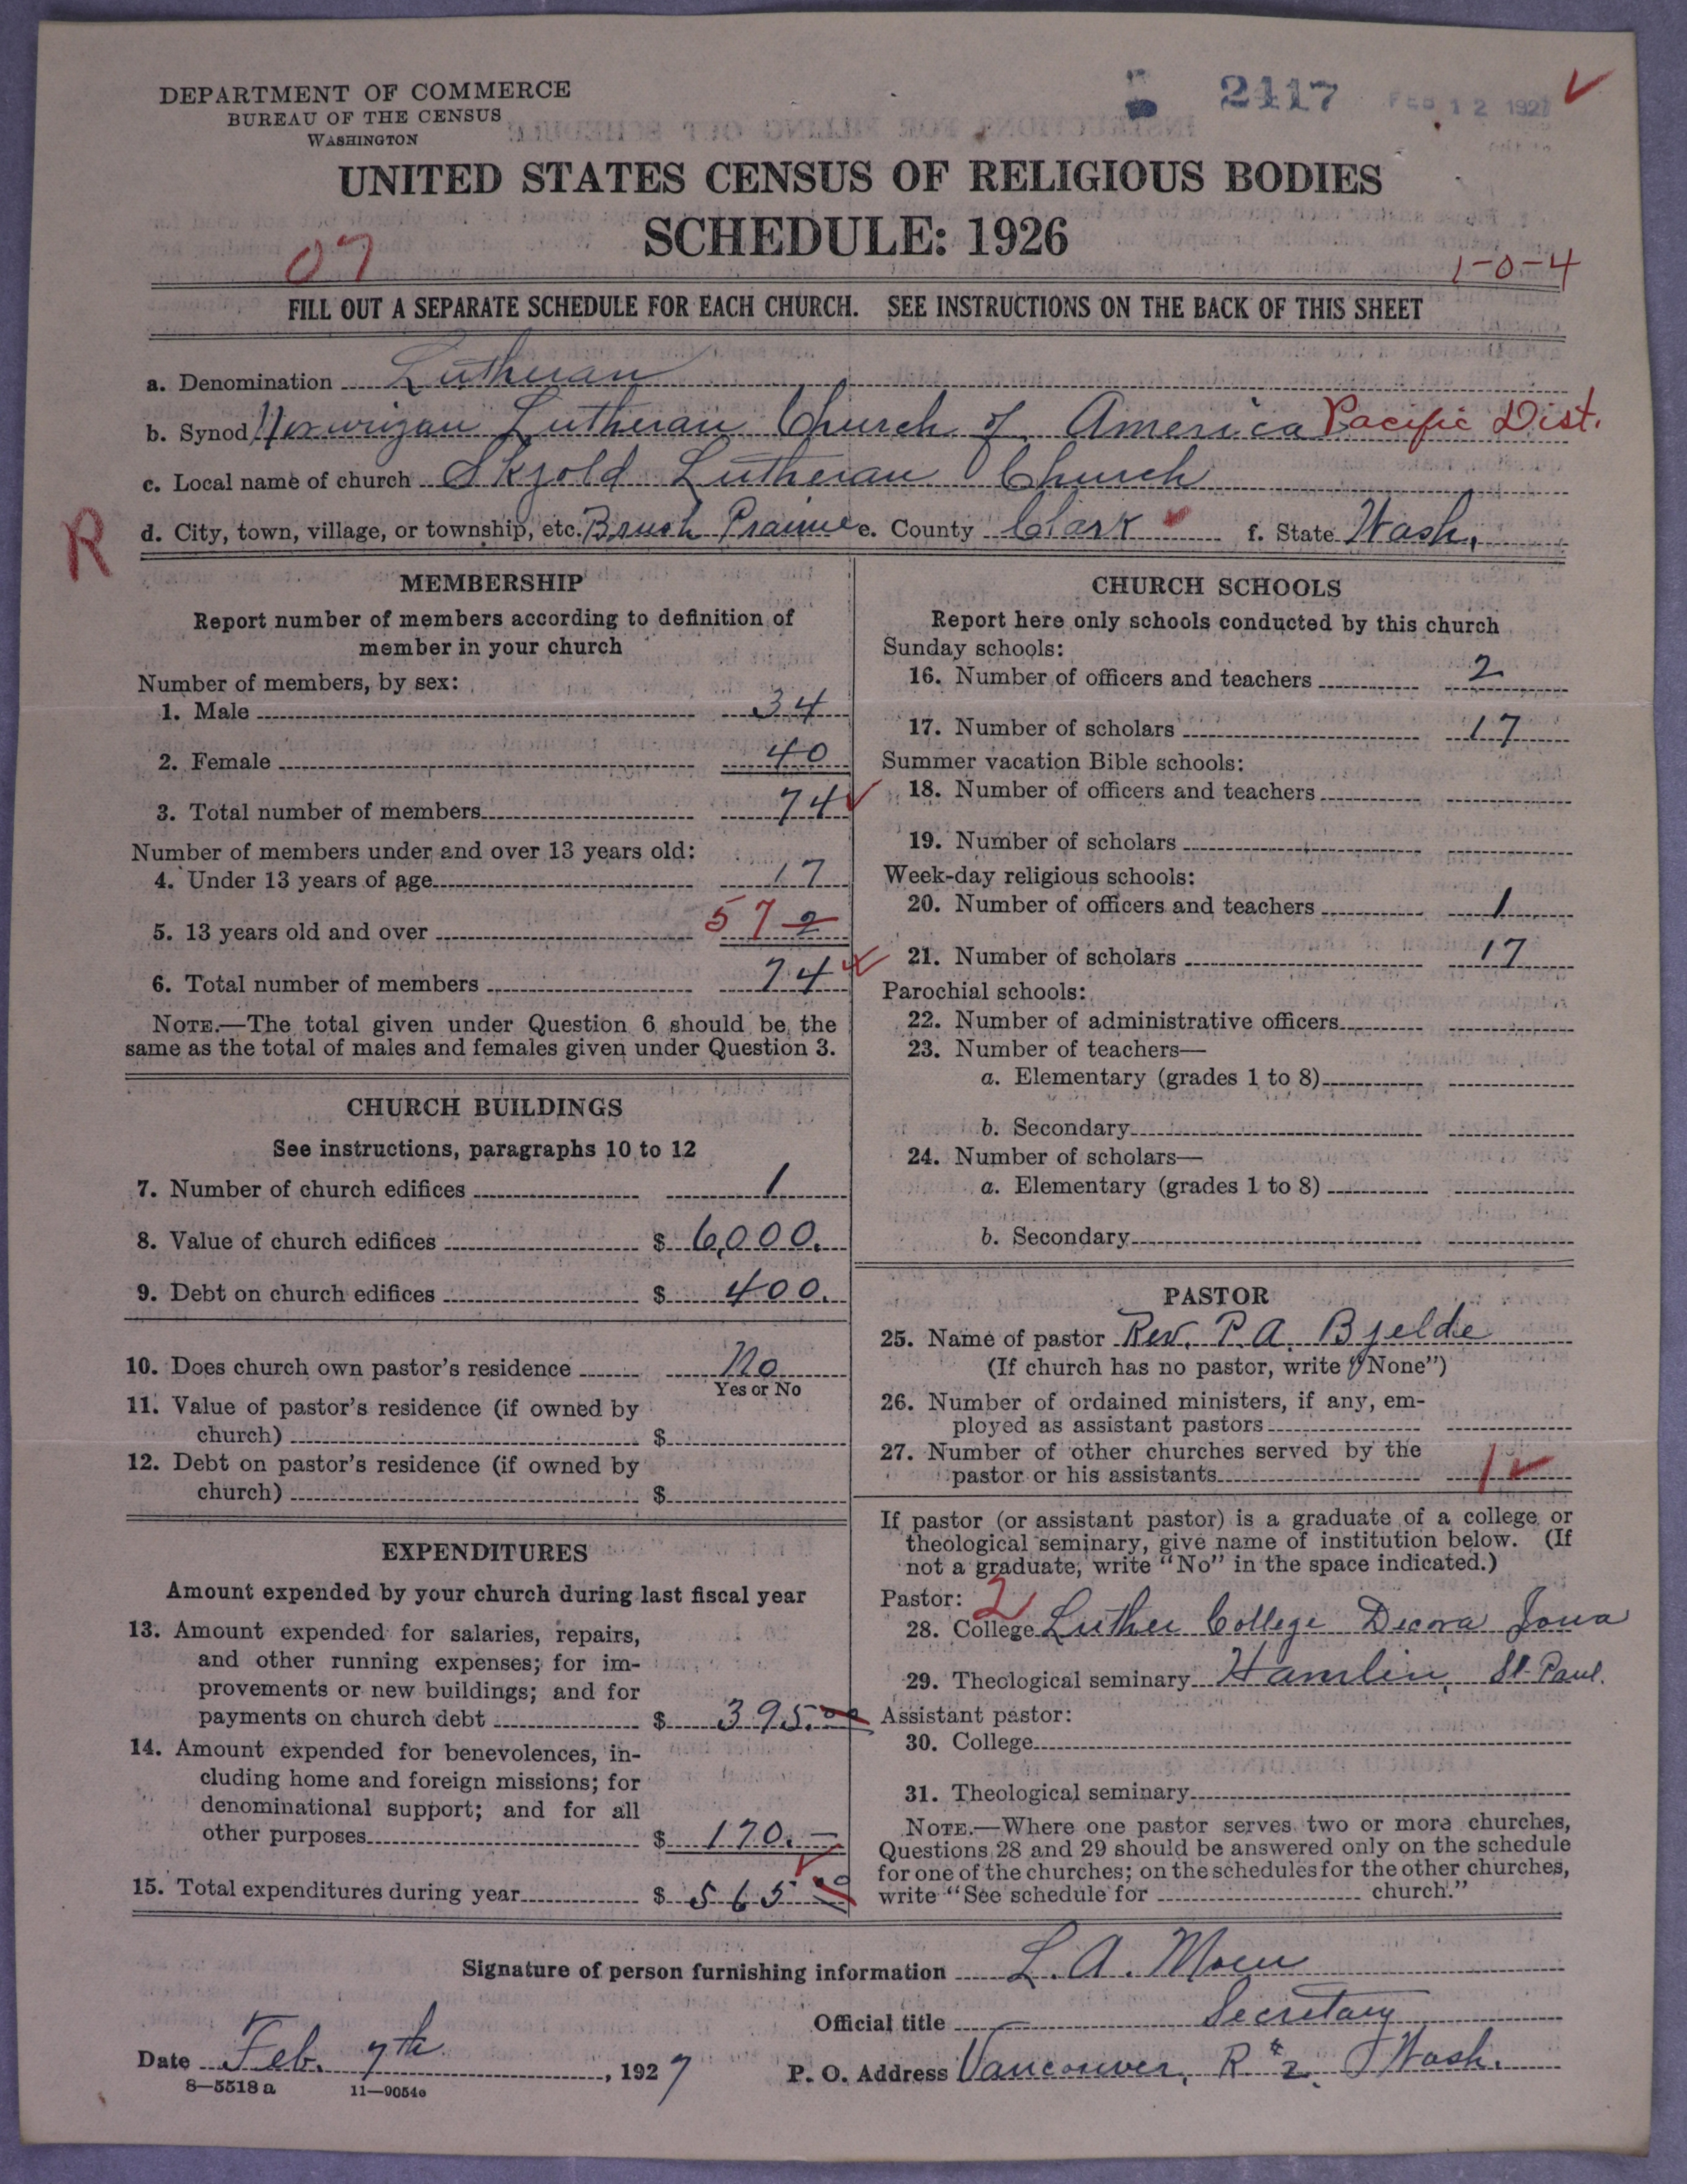 DEPARTMENT OF COMMERCE
BUREAU OF THE CENSUS
WASHINGTON
2417
FEB 12 1927
UNITED STATES CENSUS OF RELIGIOUS BODIES
SCHEDULE: 1926
07
1-0-4
FILL OUT A SEPARATE SCHEDULE FOR EACH CHURCH. SEE INSTRUCTIONS ON THE BACK OF THIS SHEET
a. Denomination Lutheran
b. Synod Norwigan Lutheran Church of America Pacific Dist.
c. Local name of church Skjold Lutheran Church
R
d. City, town, village, or township, etc. Brush Prairie e. County Clark f. State Wash.
MEMBERSHIP
Report number of members according to definition of
member in your church
Number of members, by sex:
1. Male 34
2. Female 40
3. Total number of members 74
Number of members under and over 13 years old:
4. Under 13 years of age 17
5. 13 years old and over 57 2
6. Total number of members 74
NOTE.—The total given under Question 6 should be the
same as the total of males and females given under Question 3.
CHURCH BUILDINGS
See instructions, paragraphs 10 to 12
7. Number of church edifices 1
8. Value of church edifices $ 6,000.
9. Debt on church edifices $ 400.
10. Does church own pastor's residence No
Yes or No
11. Value of pastor's residence (if owned by
church) $
12. Debt on pastor's residence (if owned by
church) $
EXPENDITURES
Amount expended by your church during last fiscal year
13. Amount expended for salaries, repairs,
and other running expenses; for im-
provements or new buildings; and for
payments on church debt $ 395.00
14. Amount expended for benevolences, in-
cluding home and foreign missions; for
denominational support; and for all
other purposes $ 170.—
15. Total expenditures during year $ 565 00
CHURCH SCHOOLS
Report here only schools conducted by this church
Sunday schools:
16. Number of officers and teachers 2
17. Number of scholars 17
Summer vacation Bible schools:
18. Number of officers and teachers
19. Number of scholars
Week-day religious schools:
20. Number of officers and teachers 1
21. Number of scholars 17
Parochial schools:
22. Number of administrative officers
23. Number of teachers—
a. Elementary (grades 1 to 8)
b. Secondary
24. Number of scholars—
a. Elementary (grades 1 to 8)
b. Secondary
PASTOR
25. Name of pastor Rev. P. A. Bjelde
(If church has no pastor, write "None")
26. Number of ordained ministers, if any, em-
ployed as assistant pastors
27. Number of other churches served by the
pastor or his assistants 1
If pastor (or assistant pastor) is a graduate of a college or
theological seminary, give name of institution below. (If
not a graduate, write "No" in the space indicated.)
Pastor: 2
28. College Luther College Decora Iowa
29. Theological seminary Hamlin, St. Paul.
Assistant pastor:
30. College
31. Theological seminary
NOTE.—Where one pastor serves two or more churches,
Questions 28 and 29 should be answered only on the schedule
for one of the churches; on the schedules for the other churches,
write "See schedule for church."
Signature of person furnishing information L. A. Moen
Official title Secretary
Date Feb. 7th, 1927
P. O. Address Vancouver, R #2, Wash.
8—5518 a 11—9054e